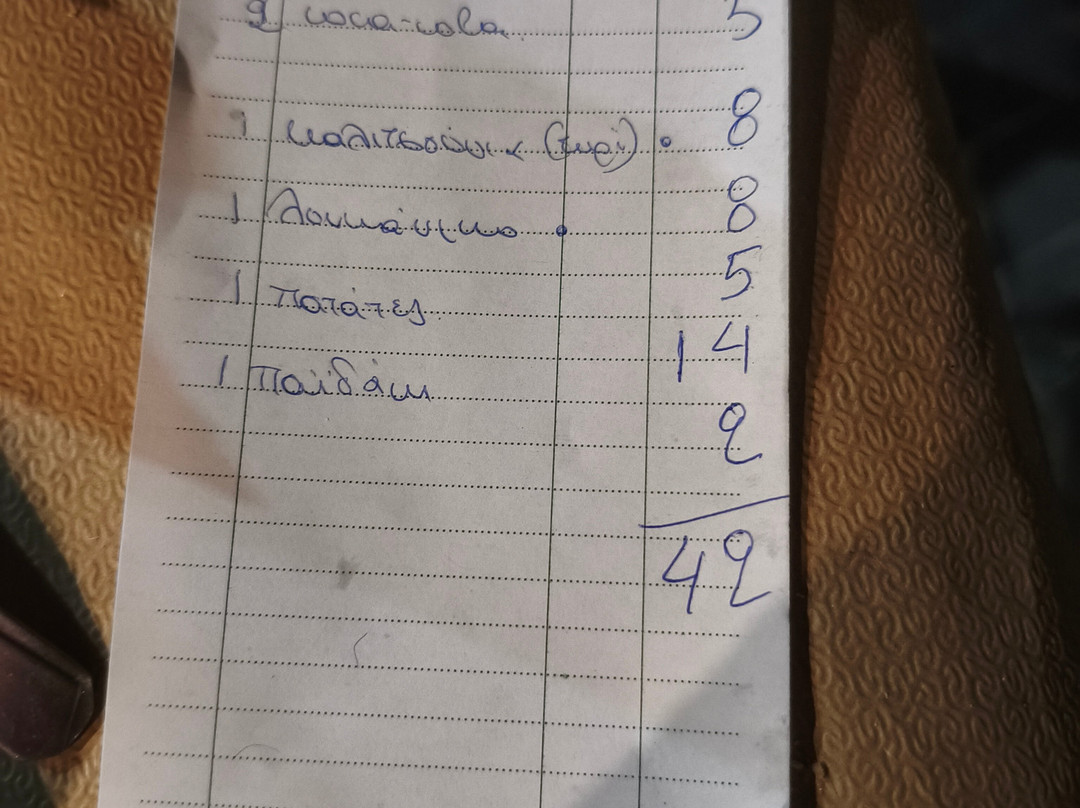 2 coca-cola 5
1 καλιτσούνια (τυρί) . 8
1 Λουκάνικο . 8
1 πατάτες 5
1 παϊδάκι 14
2
42